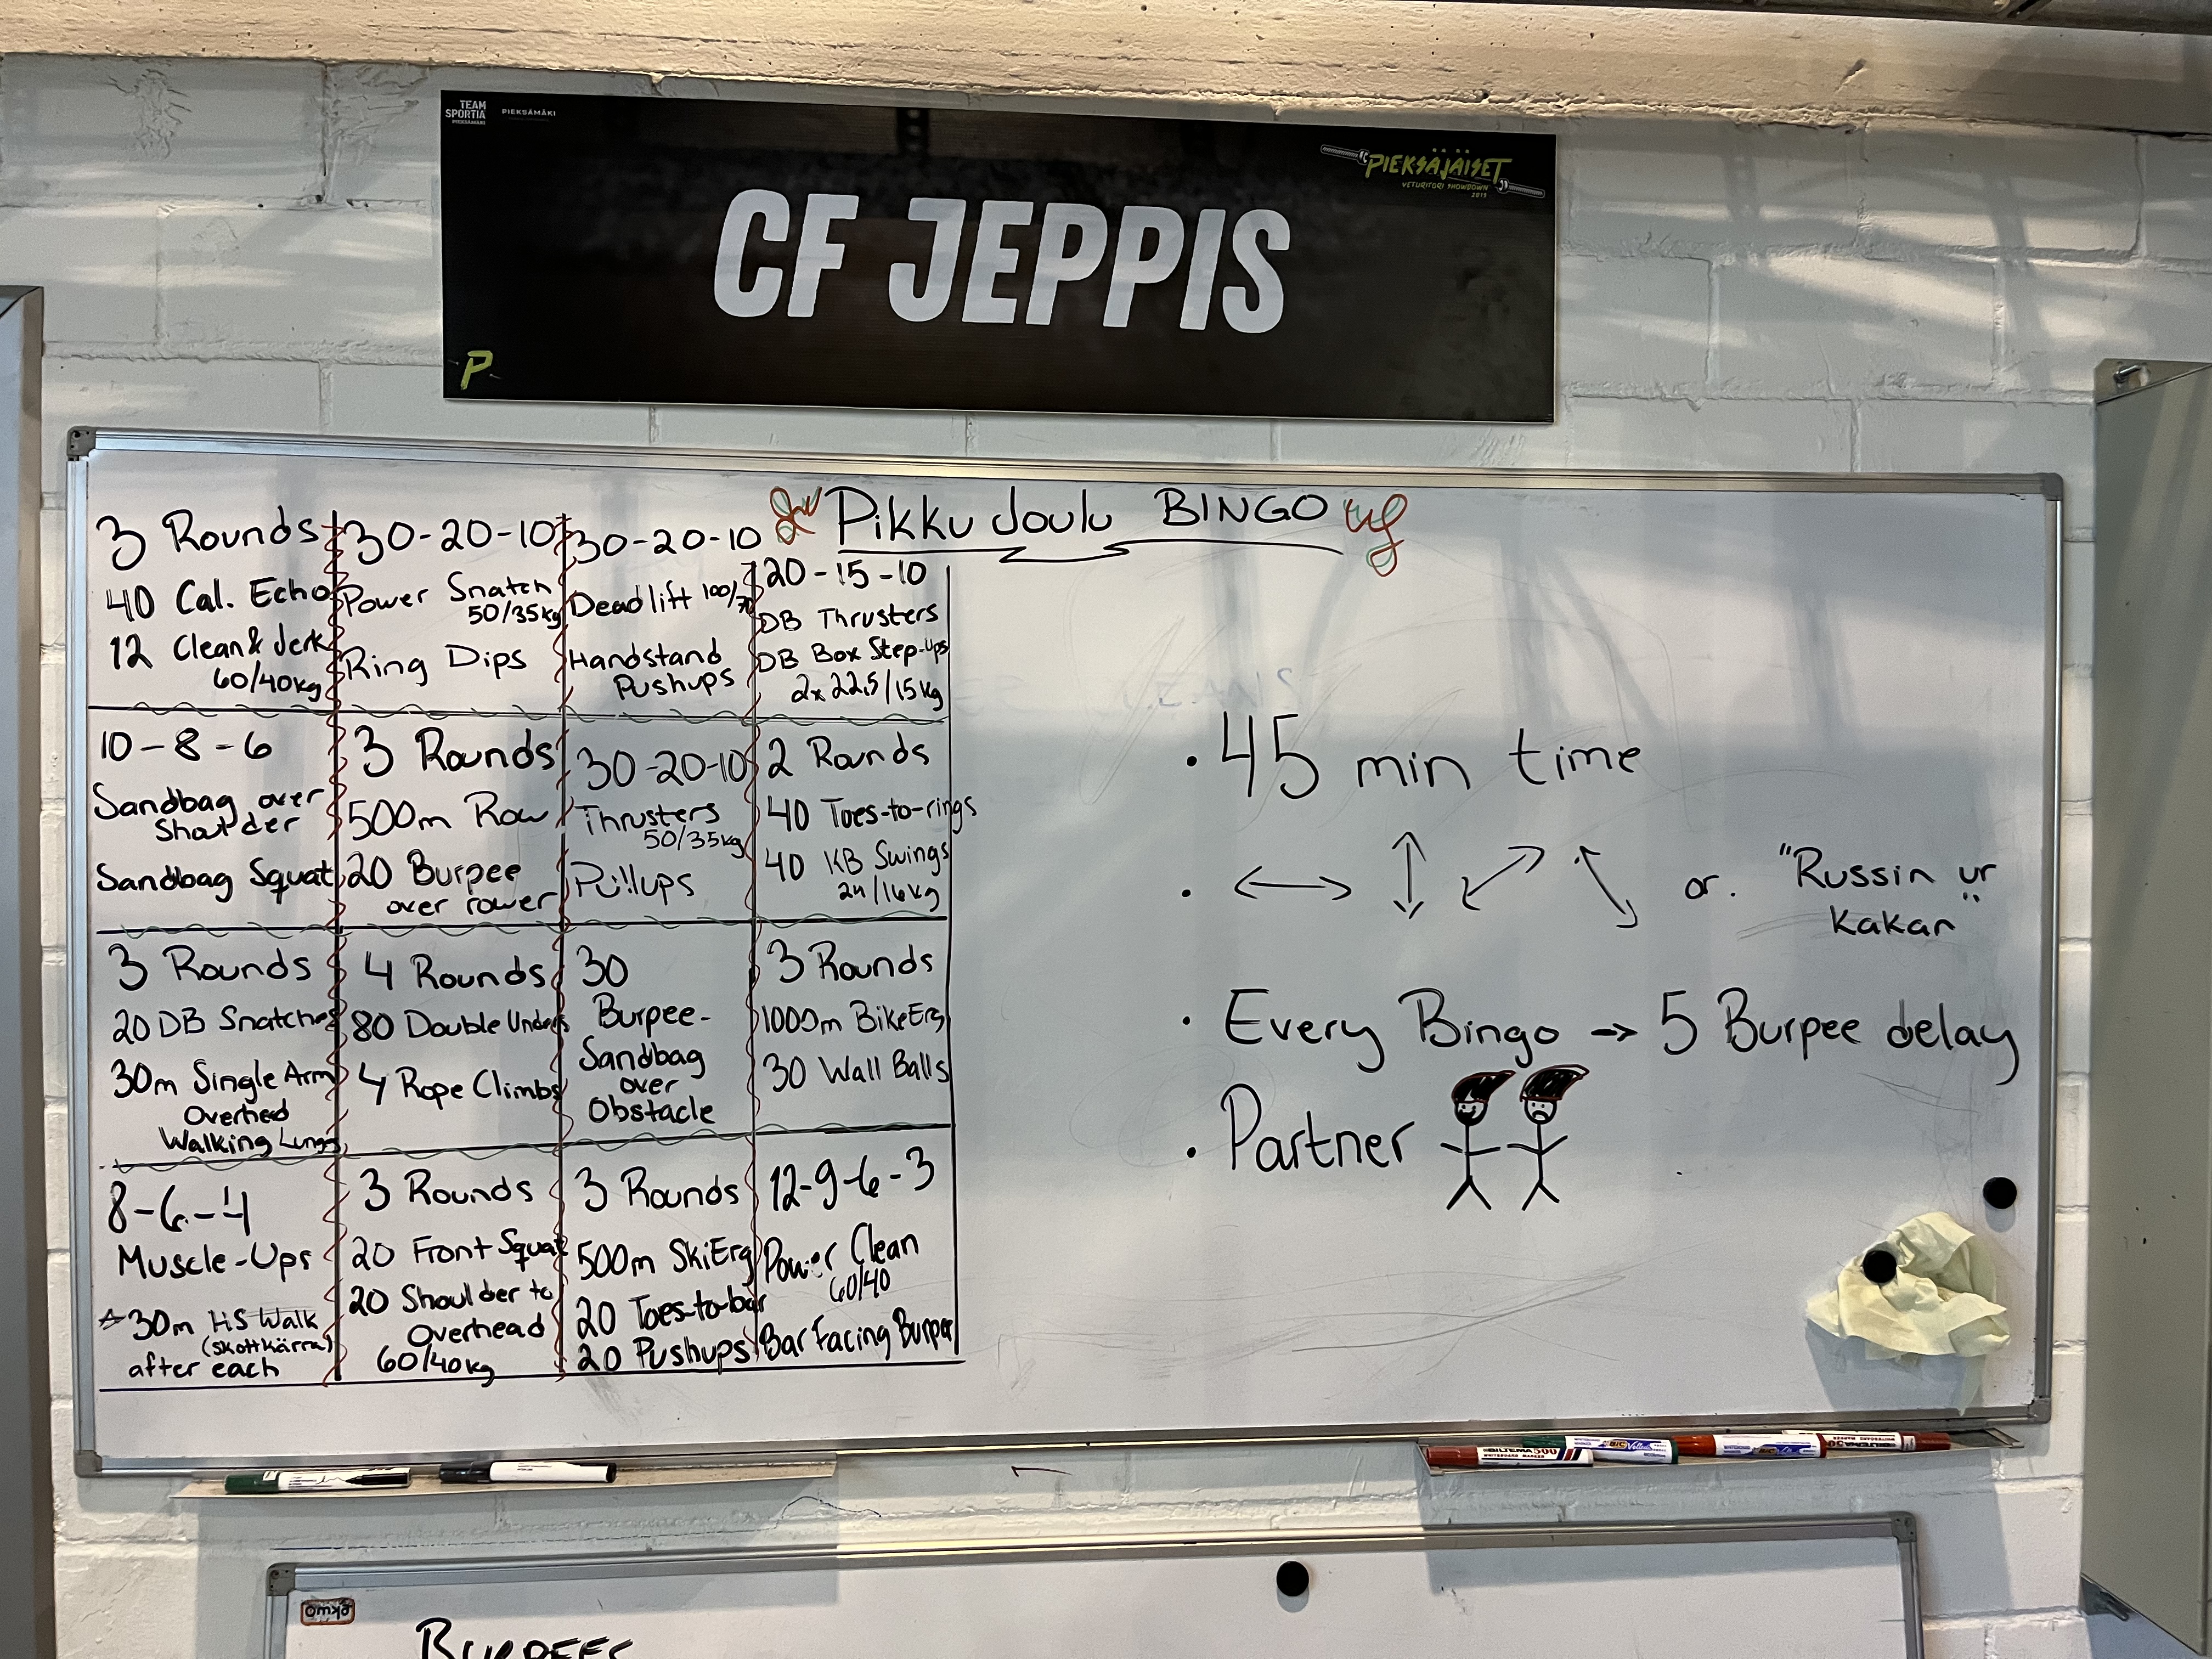 TEAM
SPORTIA
PIEKSÄMÄKI
PIEKSÄMÄKI
PIEKSÄJÄISET
VETURITORI SHOWDOWN
CF JEPPIS
P
Pikku Joulu BINGO
3 Rounds
40 Cal. Echo
12 Clean & Jerk
60/40kg
30-20-10
Power Snatch
50/35kg
Ring Dips
30-20-10
Deadlift 100/70
Handstand
Pushups
20-15-10
DB Thrusters
DB Box Step-Ups
2x22,5/15kg
10-8-6
Sandbag over
Shoulder
Sandbag Squat
3 Rounds
500m Row
20 Burpee
over rower
30-20-10
Thrusters
50/35kg
Pullups
2 Rounds
40 Toes-to-rings
40 KB Swings
24/16kg
3 Rounds
20 DB Snatches
30m Single Arm
Overhead
Walking Lunges
4 Rounds
80 Double Unders
4 Rope Climbs
30
Burpee-
Sandbag
over
Obstacle
3 Rounds
1000m BikeErg
30 Wall Balls
8-6-4
Muscle-Ups
30m HS Walk
(skottkärra)
after each
3 Rounds
20 Front Squat
20 Shoulder to
Overhead
60/40kg
3 Rounds
500m SkiErg
20 Toes-to-bar
20 Pushups
12-9-6-3
Power Clean
60/40
Bar Facing Burpee
• 45 min time
• ↔ ↕ ⤢ ⤡ or. "Russin ur
kakan"
• Every Bingo → 5 Burpee delay
• Partner
BILTEMA 500
BIC Velleda
BIC Velleda
BURPEES